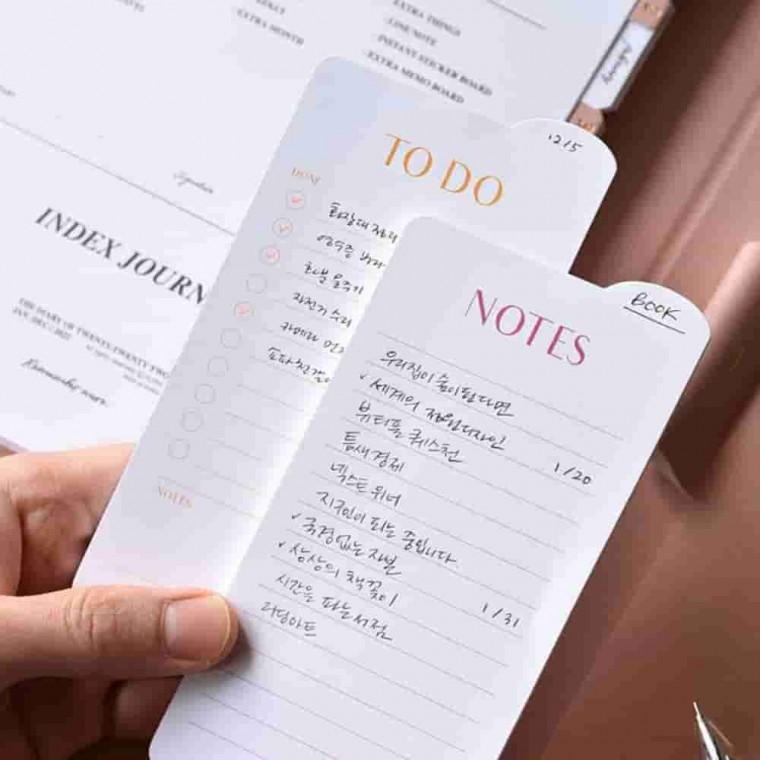 EXTRA THINGS
LINE NOTE
EXTRA MONTH
INSTANT STICKER BOARD
EXTRA MEMO BOARD
Signature
INDEX JOURN
THE DIARY OF TWENTY-TWENTY TWO
JAN-DEC / 2022
TO DO
12/5
DONE
화장대 정리
화분 옮기기
자전거 수리
카메라
NOTES
NOTES
BOOK
우리집이 숲이 된다면
✓ 세계의 정원 디자인
뷰티풀 퀘스천 1/20
틈새경제
넥스트 위너
지구인이 되는 중입니다
✓ 국경없는 자본
✓ 상상의 책꽂이 1/31
시간을 파는 서점
리딩아트